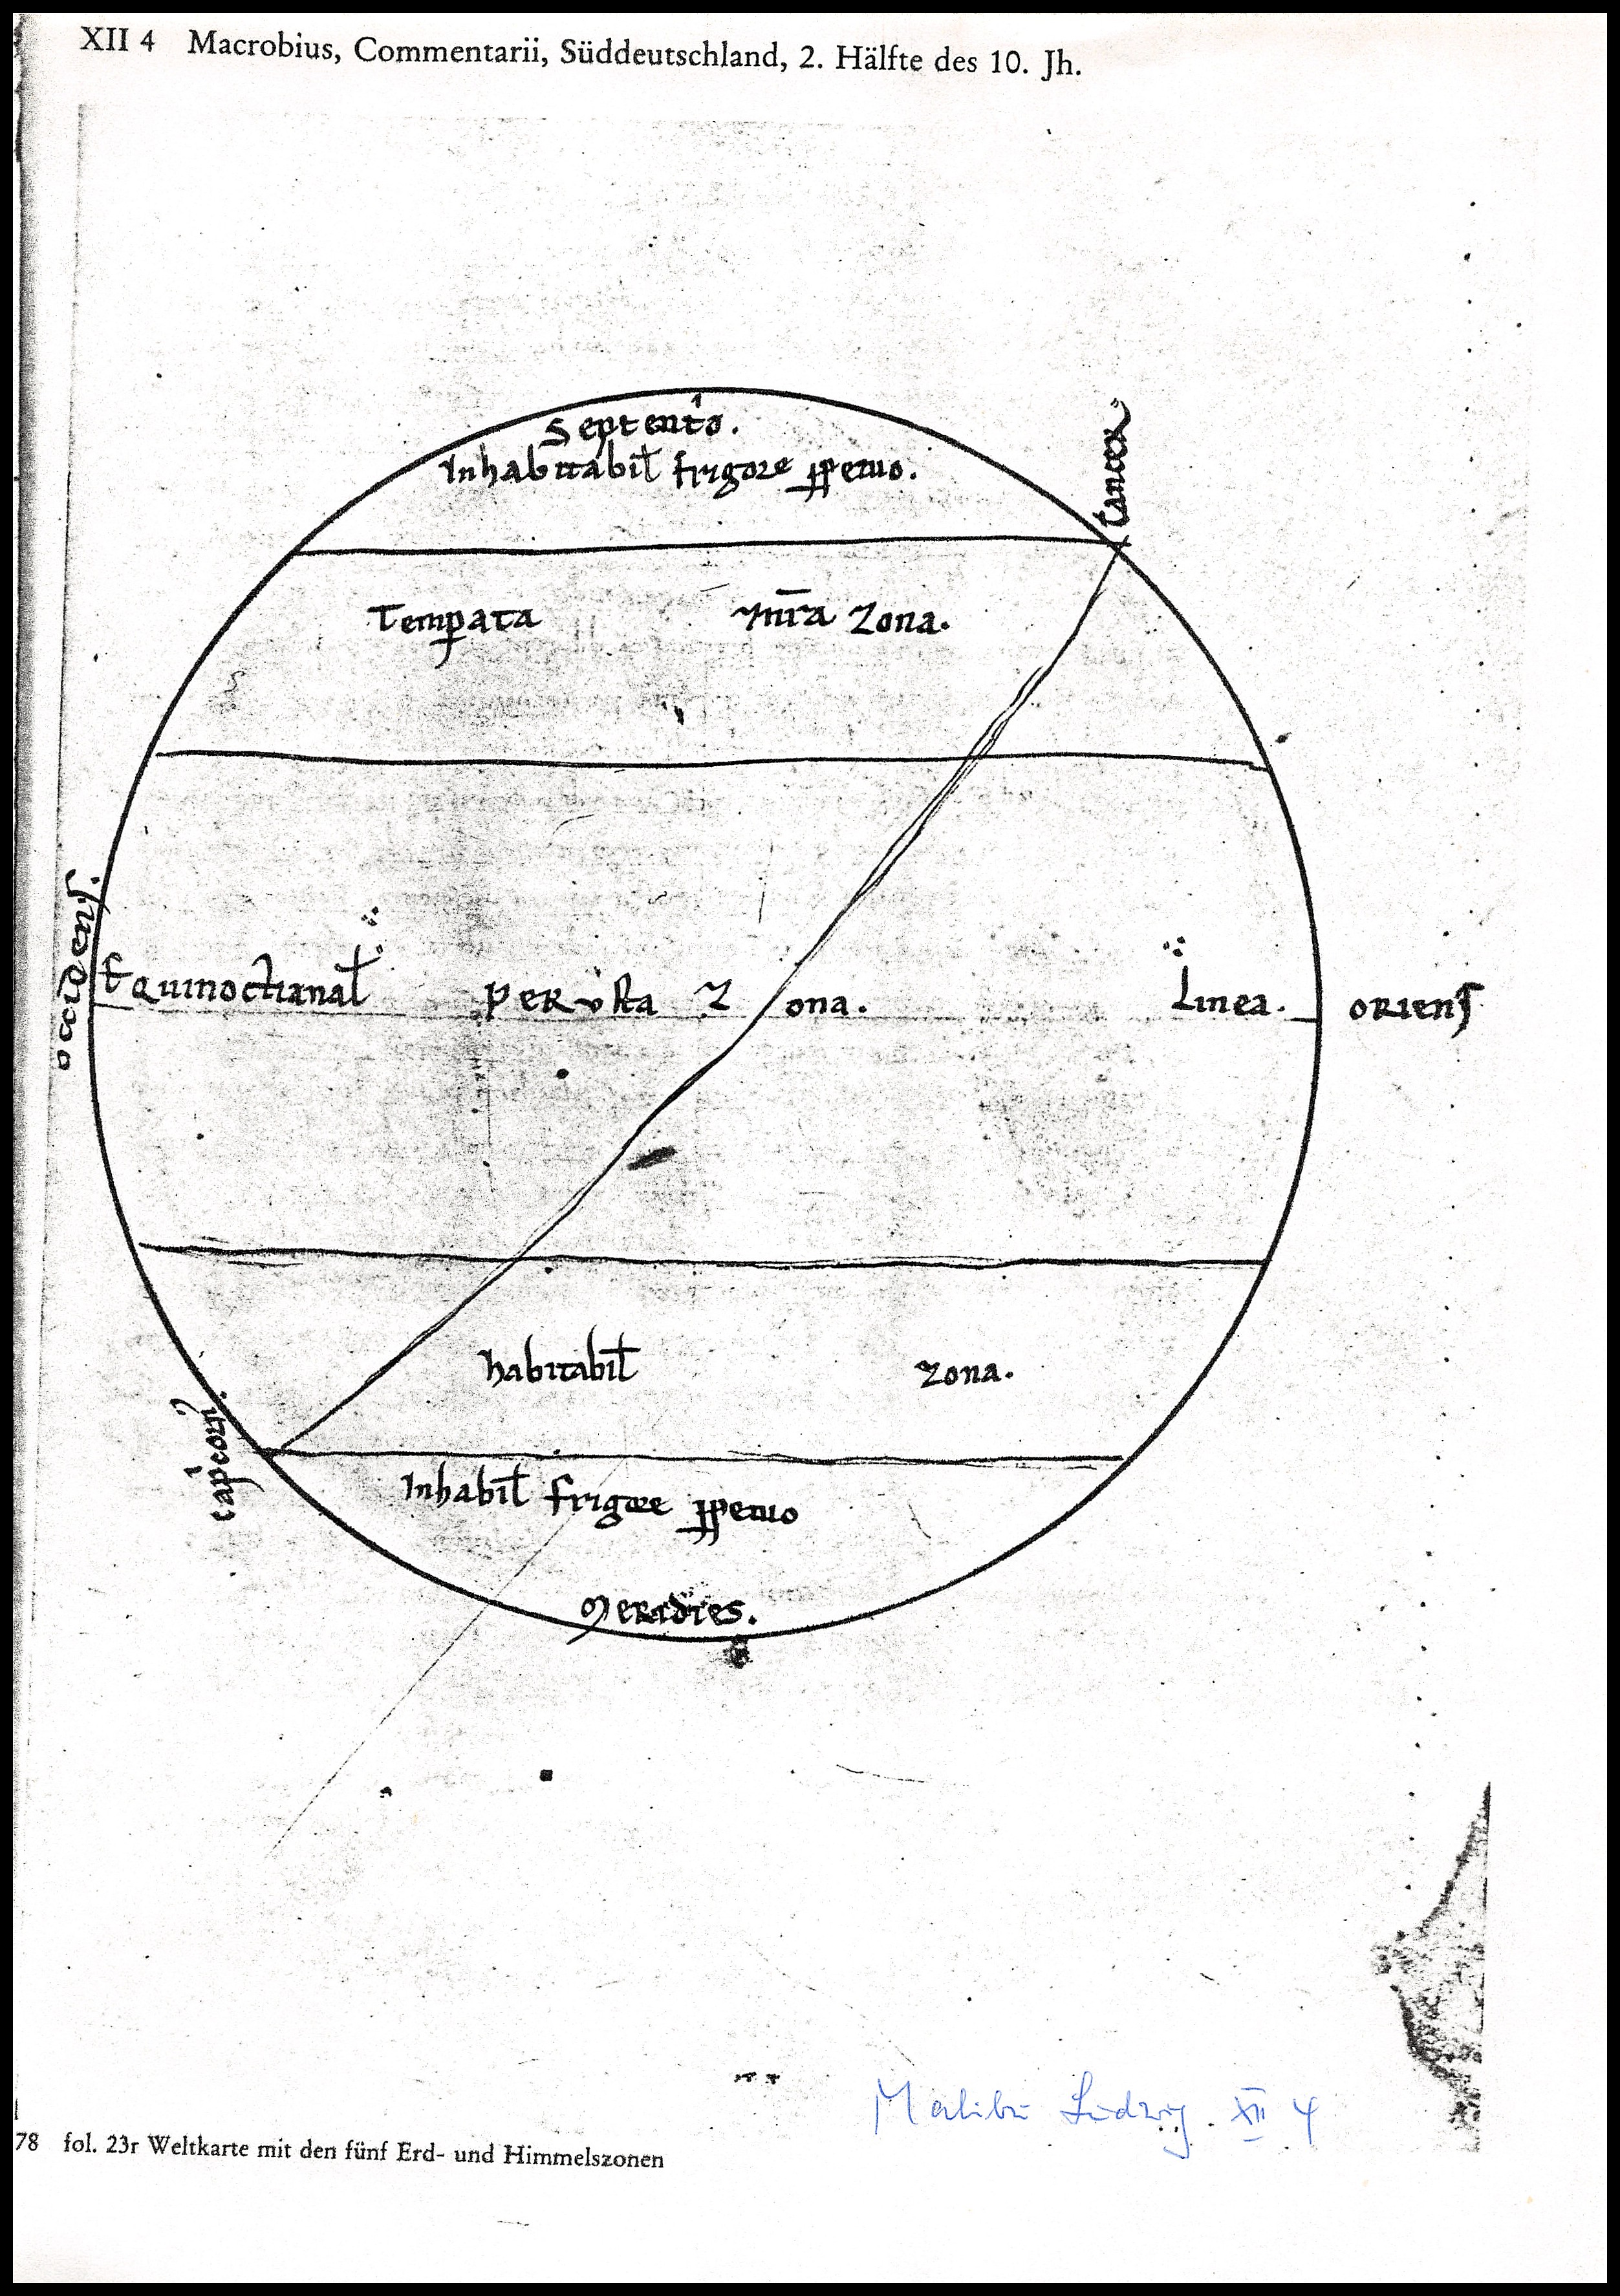 XII 4 Macrobius, Commentarii, Süddeutschland, 2. Hälfte des 10. Jh.
Septento.
Inhabitabil frigore ppetuo.
cancer
Temperata nra zona.
occidens.
Equinoctianal perusta z ona. Linea. oriens
habitabil zona.
capcorn
Inhabil frigore ppetuo
Meradies.
Malibu Ludwig. XII 4
78 fol. 23r Weltkarte mit den fünf Erd- und Himmelszonen